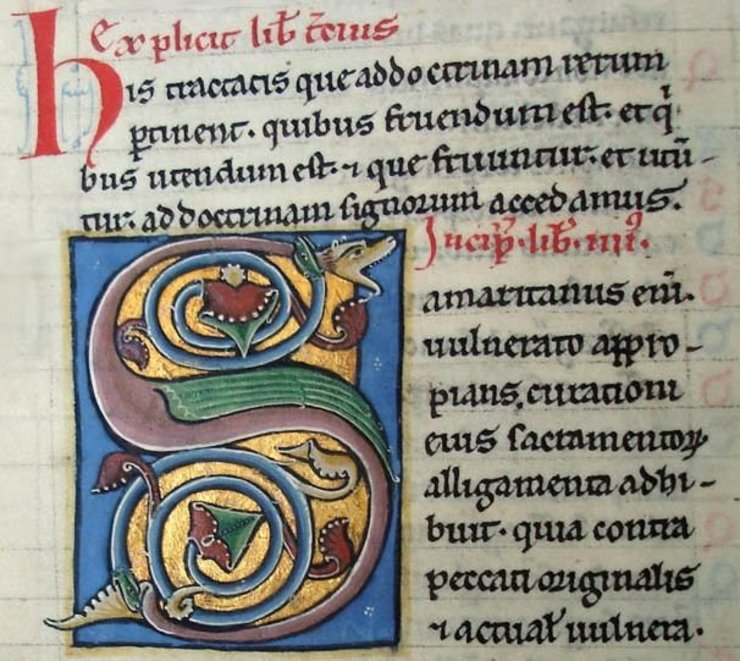 Explicit lib̄ t̄cius
His tractatis que ad doctrinam rerum
ꝑtinent. quibus fruendum est. et qⁱ
bus utendum est. ⁊ que fruuntur. et utū-
tur. ad doctrinam signorum accedamus.
Incip̄. lib̄. iiiiꝰ.
Samaritanus eni̅.
uulnerato appro-
pians, curationi
eius sacramentoꝝ
alligamenta adhi-
buit. quia contra
peccati originalis
⁊ actual̄ uulnera.